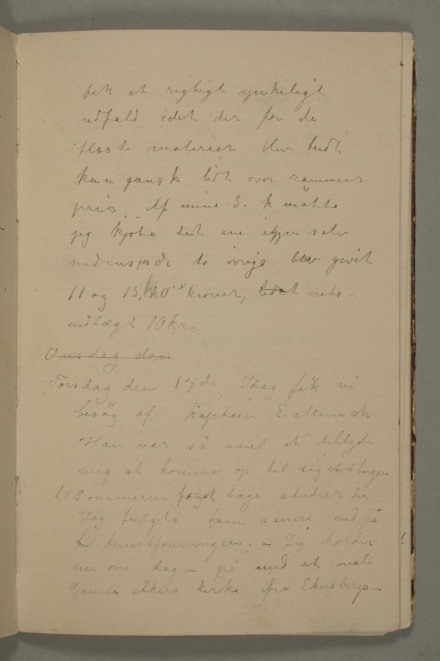 fik et rigtigt ynkeligt
udfald idet der for de
fleste malerier blev budt
kun ganske lidt over rammens
pris. Af mine 3. måtte
jeg kjøbe det ene igjen selv
medens på de to øvrige blev givet
11 og 15, kroner, netto
udlægt 10 kr.
Onsdag den
Torsdag den 17de. Idag fik vi
besøg af Kaptain
Han var så snil at tilbyde
mig at komme op til sig
til Sommeren for at tage studier der.
Jeg fulgte ham senere ned på
til kunstforeningen. – Jeg holder
nu om dagen på med at male
Gamle Akers kirke fra Ekeberg-